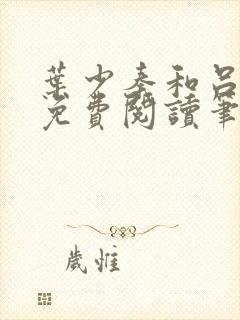 葉少奏和呂
免費閱讀筆
歲惟